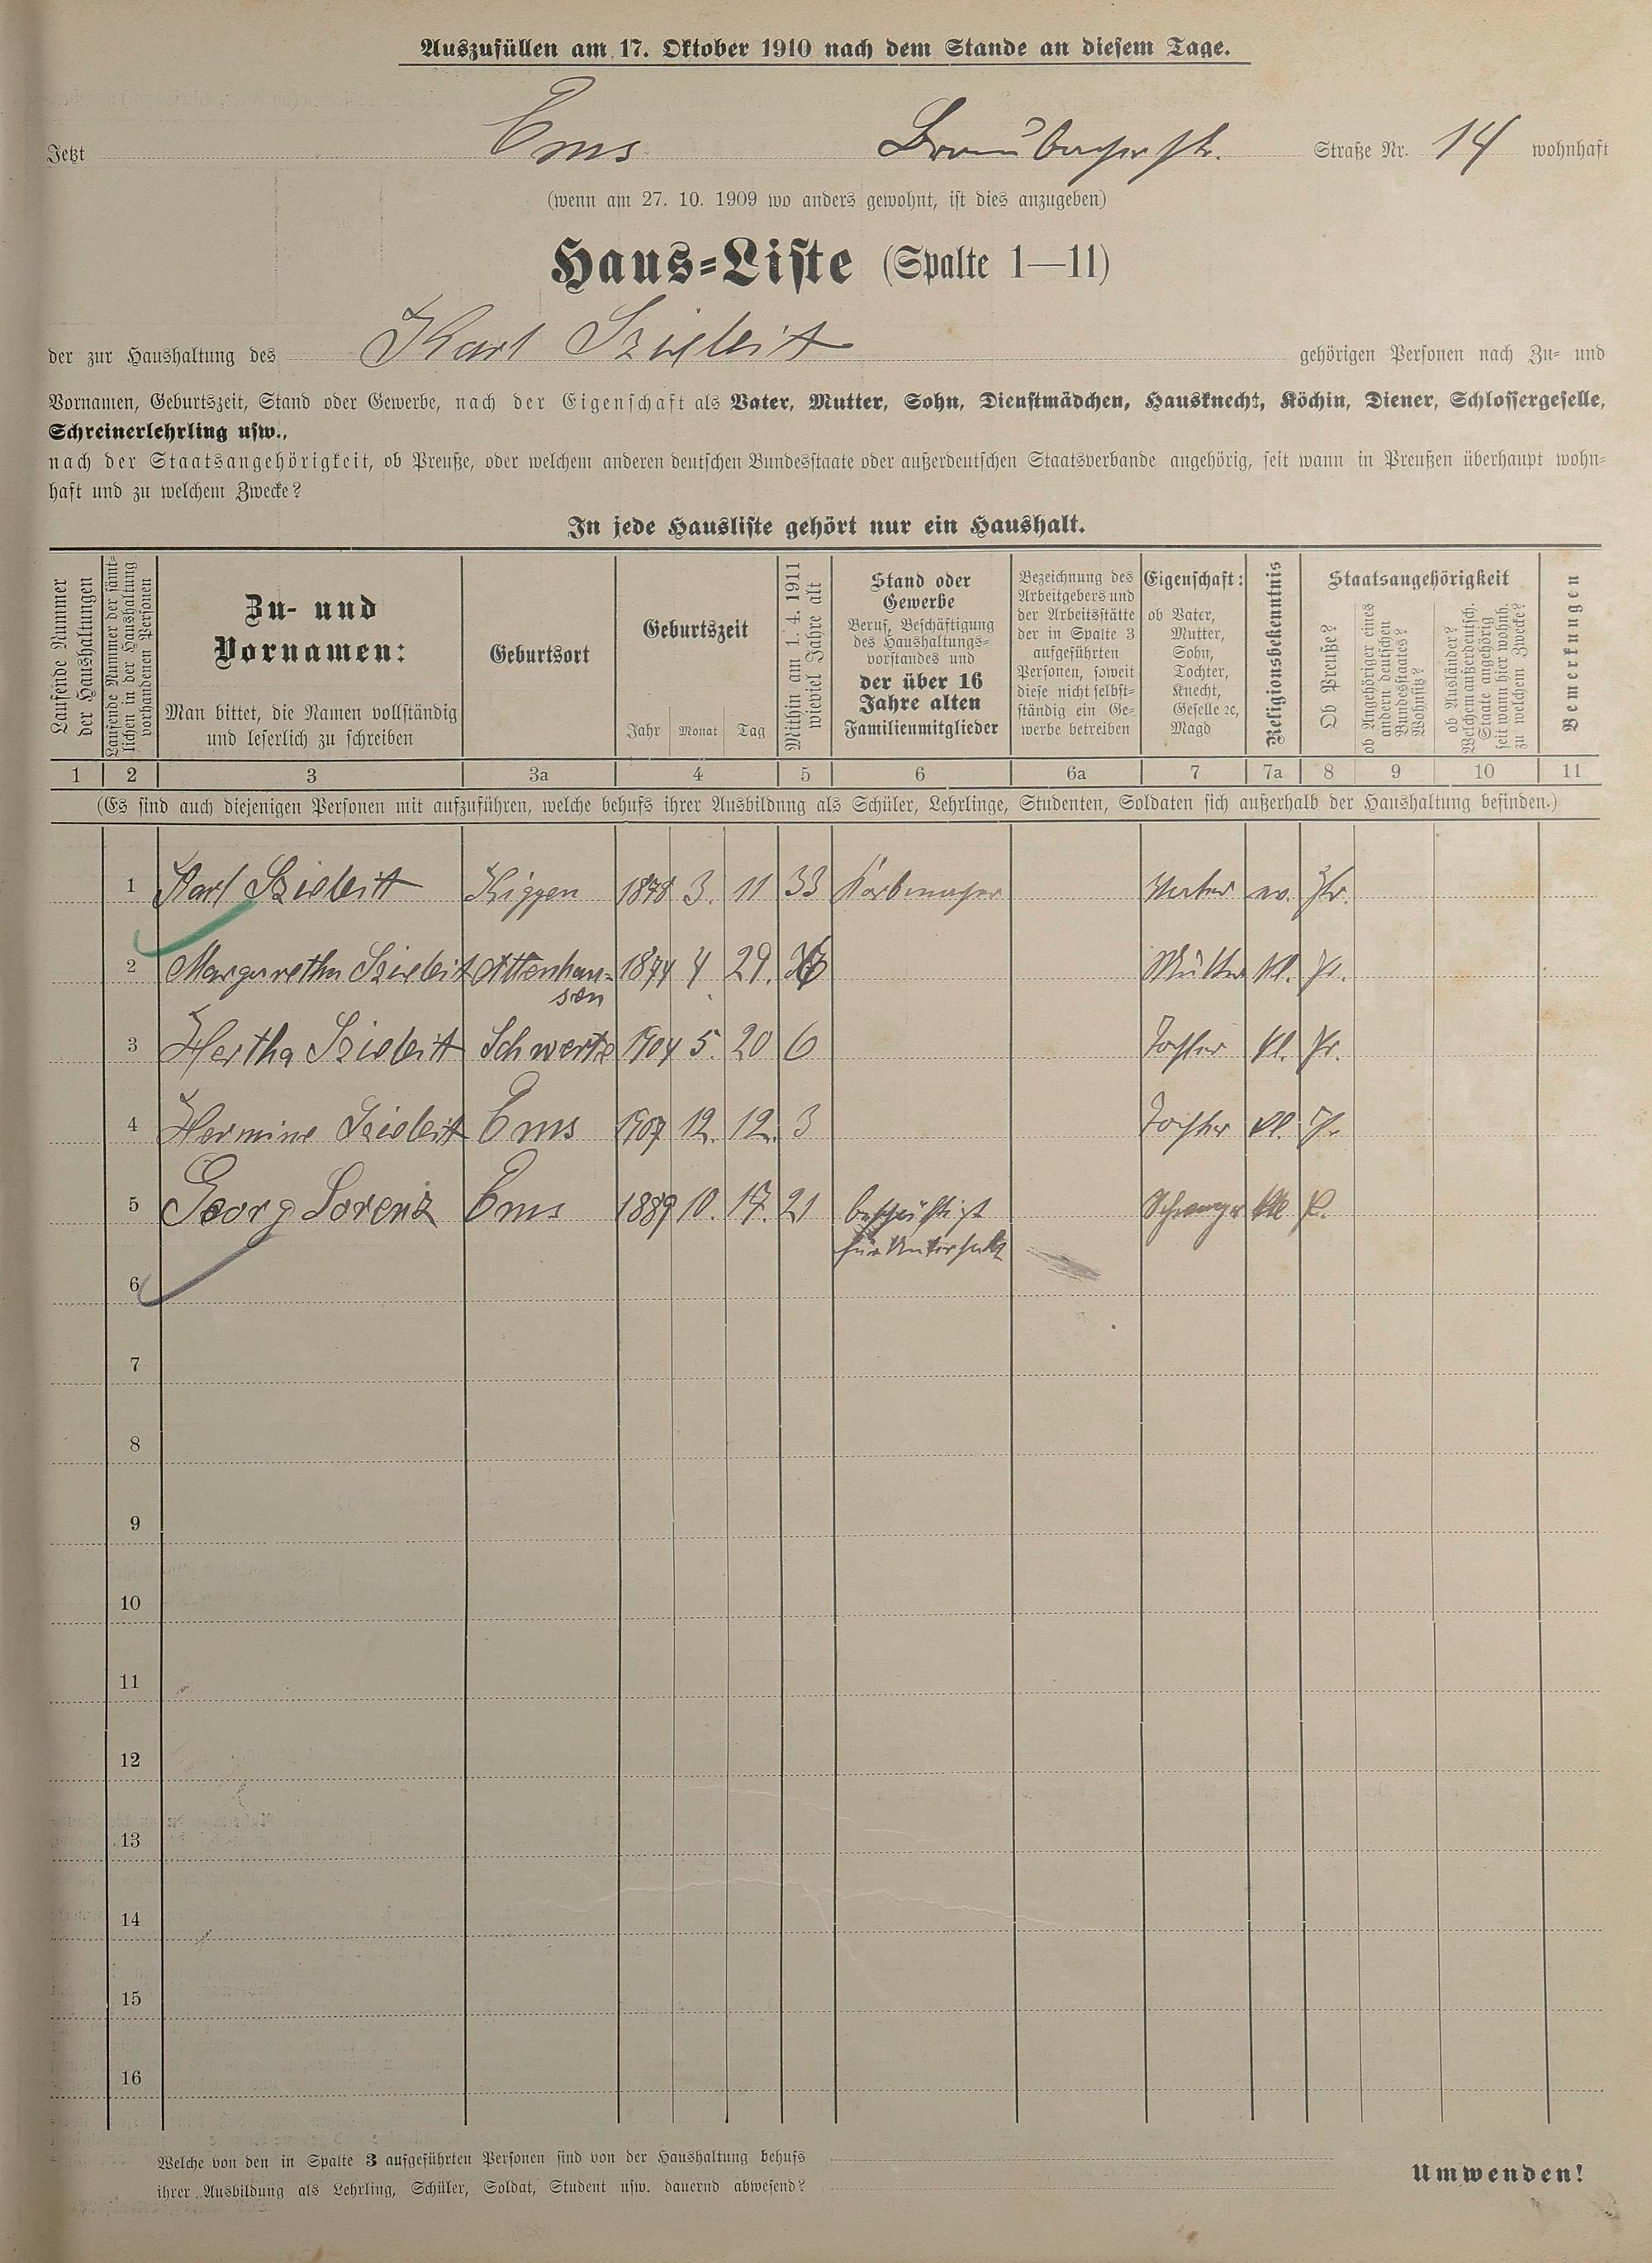 Auszufüllen am 17. Oktober 1910 nach dem Stande an diesem Tage.
Jetzt Ems Braubacherstr. Straße Nr. 14 wohnhaft
(wenn am 27. 10. 1909 wo anders gewohnt, ist dies anzugeben)
Haus-Liste (Spalte 1—11)
der zur Haushaltung des Karl Szieleit gehörigen Personen nach Zu- und
Vornamen, Geburtszeit, Stand oder Gewerbe, nach der Eigenschaft als Vater, Mutter, Sohn, Dienstmädchen, Hausknecht, Köchin, Diener, Schlossergeselle,
Schreinerlehrling usw.,
nach der Staatsangehörigkeit, ob Preuße, oder welchem anderen deutschen Bundesstaate oder außerdeutschen Staatsverbande angehörig, seit wann in Preußen überhaupt wohn-
haft und zu welchem Zwecke?
In jede Hausliste gehört nur ein Haushalt.
Laufende Nummer
der Haushaltungen
Laufende Nummer der sämt-
lichen in der Haushaltung
vorhandenen Personen
Zu- und
Vornamen:
Man bittet, die Namen vollständig
und leserlich zu schreiben
Geburtsort
Geburtszeit
Jahr Monat Tag
Mithin am 1. 4. 1911
wieviel Jahre alt
Stand oder
Gewerbe
Beruf, Beschäftigung
des Haushaltungs-
vorstandes und
der über 16
Jahre alten
Familienmitglieder
Bezeichnung des
Arbeitgebers und
der Arbeitsstätte
der in Spalte 3
aufgeführten
Personen, soweit
diese nicht selbst-
ständig ein Ge-
werbe betreiben
Eigenschaft:
ob Vater,
Mutter,
Sohn,
Tochter,
Knecht,
Geselle ꝛc,
Magd
Religionsbekenntnis
Staatsangehörigkeit
Ob Preuße?
ob Angehöriger eines
andern deutschen
Bundesstaates?
Wohnsitz?
ob Ausländer?
Welchem außerdeutsch.
Staate angehörig
seit wann hier wohnh.
zu welchem Zwecke?
Bemerkungen
1 2 3 3a 4 5 6 6a 7 7a 8 9 10 11
(Es sind auch diejenigen Personen mit aufzuführen, welche behufs ihrer Ausbildung als Schüler, Lehrlinge, Studenten, Soldaten sich außerhalb der Haushaltung befinden.)
1 Karl Szieleit 1878 3. 11 33 Korbmacher Vater ev. Pr.
2 Margaretha Szieleit Attenhau-
sen 1874 4 29. 36 Mutter kl. Pr.
3 Hertha Szieleit Schwerte 1904 5. 20 6 Tochter kl. Pr.
4 Hermine Szieleit Ems 1907 12. 12. 3 Tochter kl. Pr.
5 Georg Lorenz Ems 1889 10. 17. 21 beschäftigt Schwager P.
für Unterhalt
6
7
8
9
10
11
12
13
14
15
16
Welche von den in Spalte 3 aufgeführten Personen sind von der Haushaltung behufs
ihrer Ausbildung als Lehrling, Schüler, Soldat, Student usw. dauernd abwesend?
Umwenden!